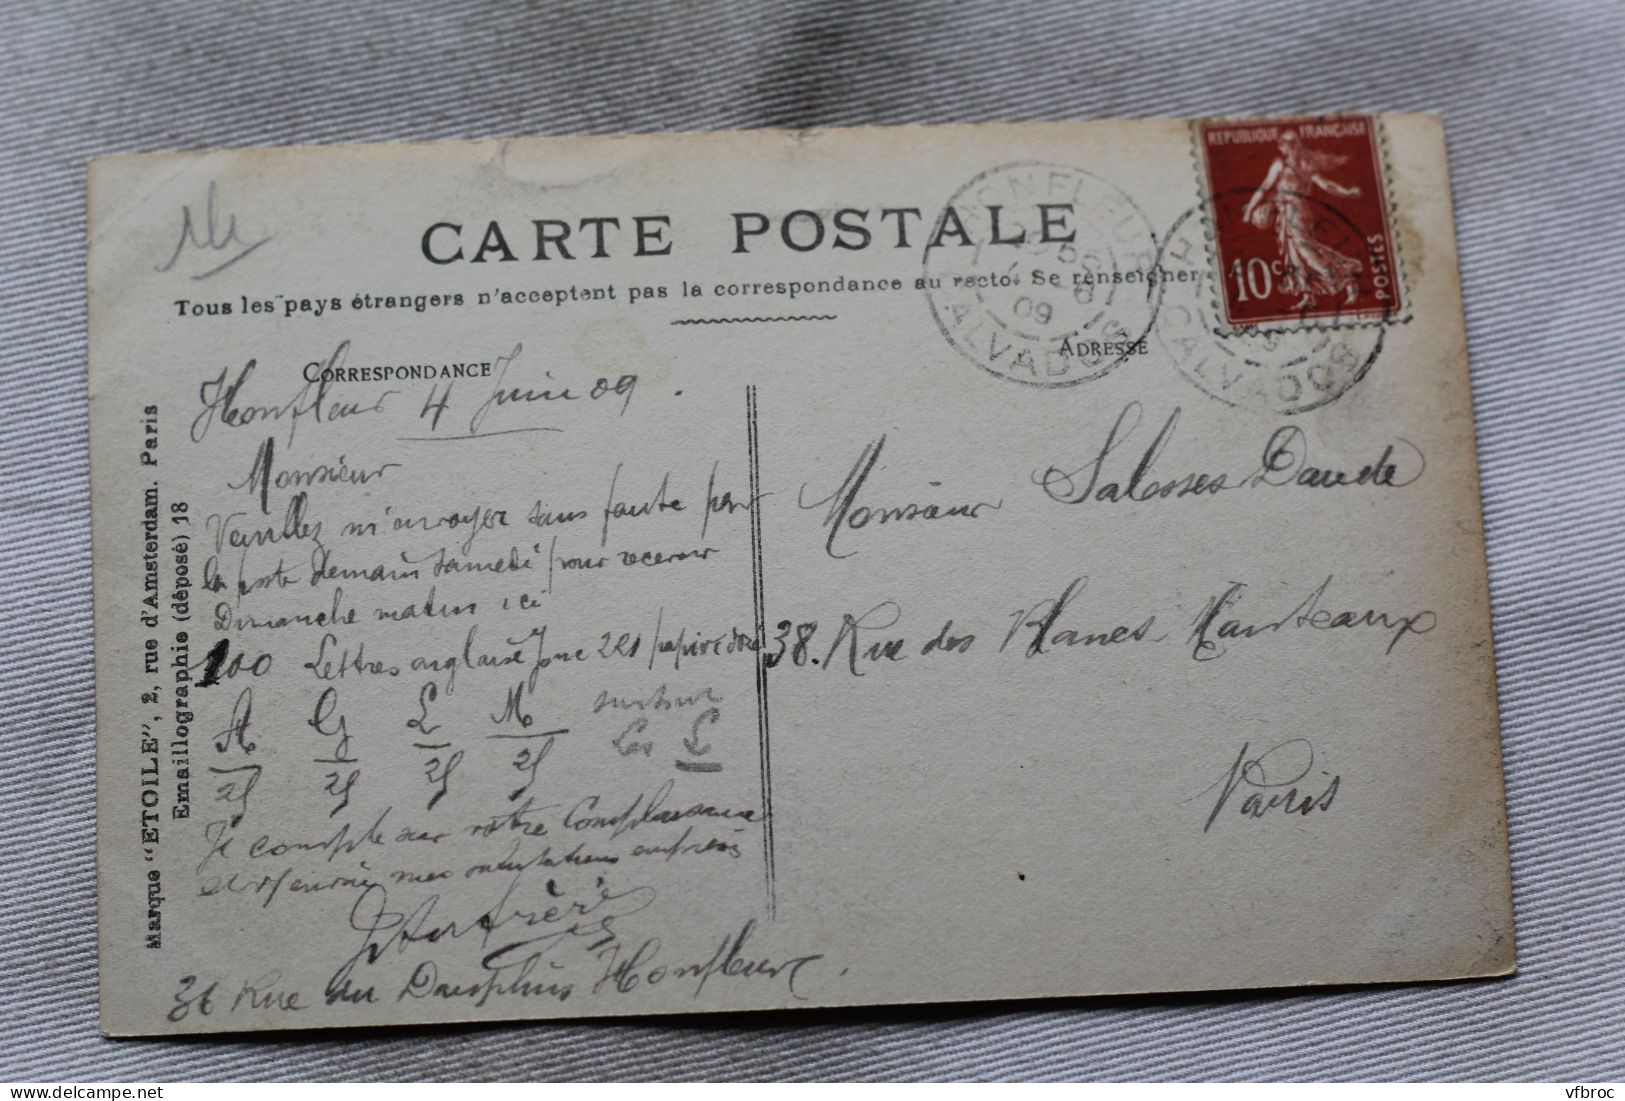 CARTE POSTALE
Tous les pays étrangers n'acceptent pas la correspondance au recto. Se renseigner
CORRESPONDANCE
ADRESSE
REPUBLIQUE FRANÇAISE
10c
POSTES
HONFLEUR
09
CALVADOS
HONFLEUR
CALVADOS
Marque "ETOILE", 2, rue d'Amsterdam. Paris
Emaillographie (déposé) 18
Honfleur 4 Juin 09.
Monsieur
Veuillez m'envoyer sans faute par
la poste demain samedi pour recevoir
Dimanche matin ici
100 Lettres anglaise
A G L M surtout
25 25 25 25 les L
Je compte sur votre Complaisance
mes salutations
36 Rue du Dauphin Honfleur.
Monsieur Salosses Daude
38. Rue des Blancs Manteaux
Paris
delcampe.net
vfbroc